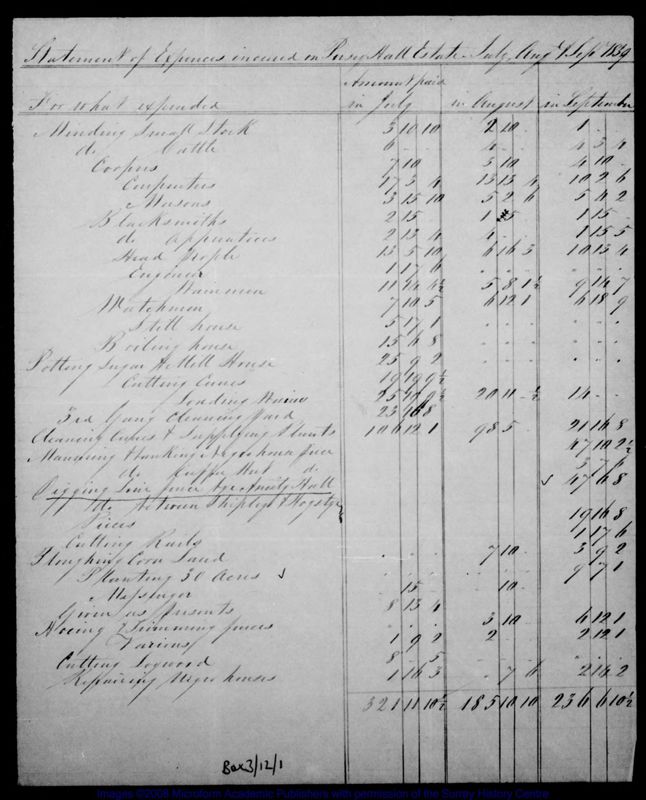 Statement of Expences incured on Persey Hall Estate July, Augt & Sept 1839
Amount paid
For what expended in July in August in September
Minding Small Stock 3 10 10 2 10 1 - -
do. Cattle 6 - - 4 - - 4 3 4
Coopers 7 10 3 10 4 10 -
Carpenters 17 3 4 13 13 4 10 2 6
Masons 3 15 10 5 2 6 5 4 2
Blacksmiths 2 15 1 5 1 15 -
do. Apprentices 2 13 4 4 - 1 15 5
Head People 13 5 10 6 16 3 10 13 4
Engineer 1 17 6 - - - - - -
Wainmen 11 14 4½ 5 8 1½ 9 14 7
Watchmen 7 10 5 6 12 1 6 18 9
Still house 5 17 1 - - - - - -
Boiling house 15 6 8 - - - - - -
Potting Sugar & Mill House 25 9 2 - - - - - -
Cutting Canes 19 19 9½
Loading Wains 20 11 ½ 14 - -
3rd Gang Cleaning Yard 23 16 8
Cleaning Canes & Supplying Plants 106 12 1 98 5 - 21 16 8
Manuring & banking 47 10 2½
do. Hut do.
Digging Line 47 6 8
do. between Shiplipt &
Pieces 19 16 8
Cutting Rails 1 17 6
Ploughing Corn Land 7 10 3 9 2
Planting 30 Acres - - - - - - 9 7 1
Messenger 15 10
Given as Presents 8 13 4
Hoeing & Trimming fences - - - 3 10 6 12 1
Various 1 9 2 2 - 2 12 1
Cutting Logwood 8 5 - - - - - -
Repairing Negro houses 1 16 3 - 7 6 2 14 2
321 11 10½ 185 10 10 236 6 10½
Box 3/12/1
Images ©2008 Microform Academic Publishers with permission of the Surrey History Centre